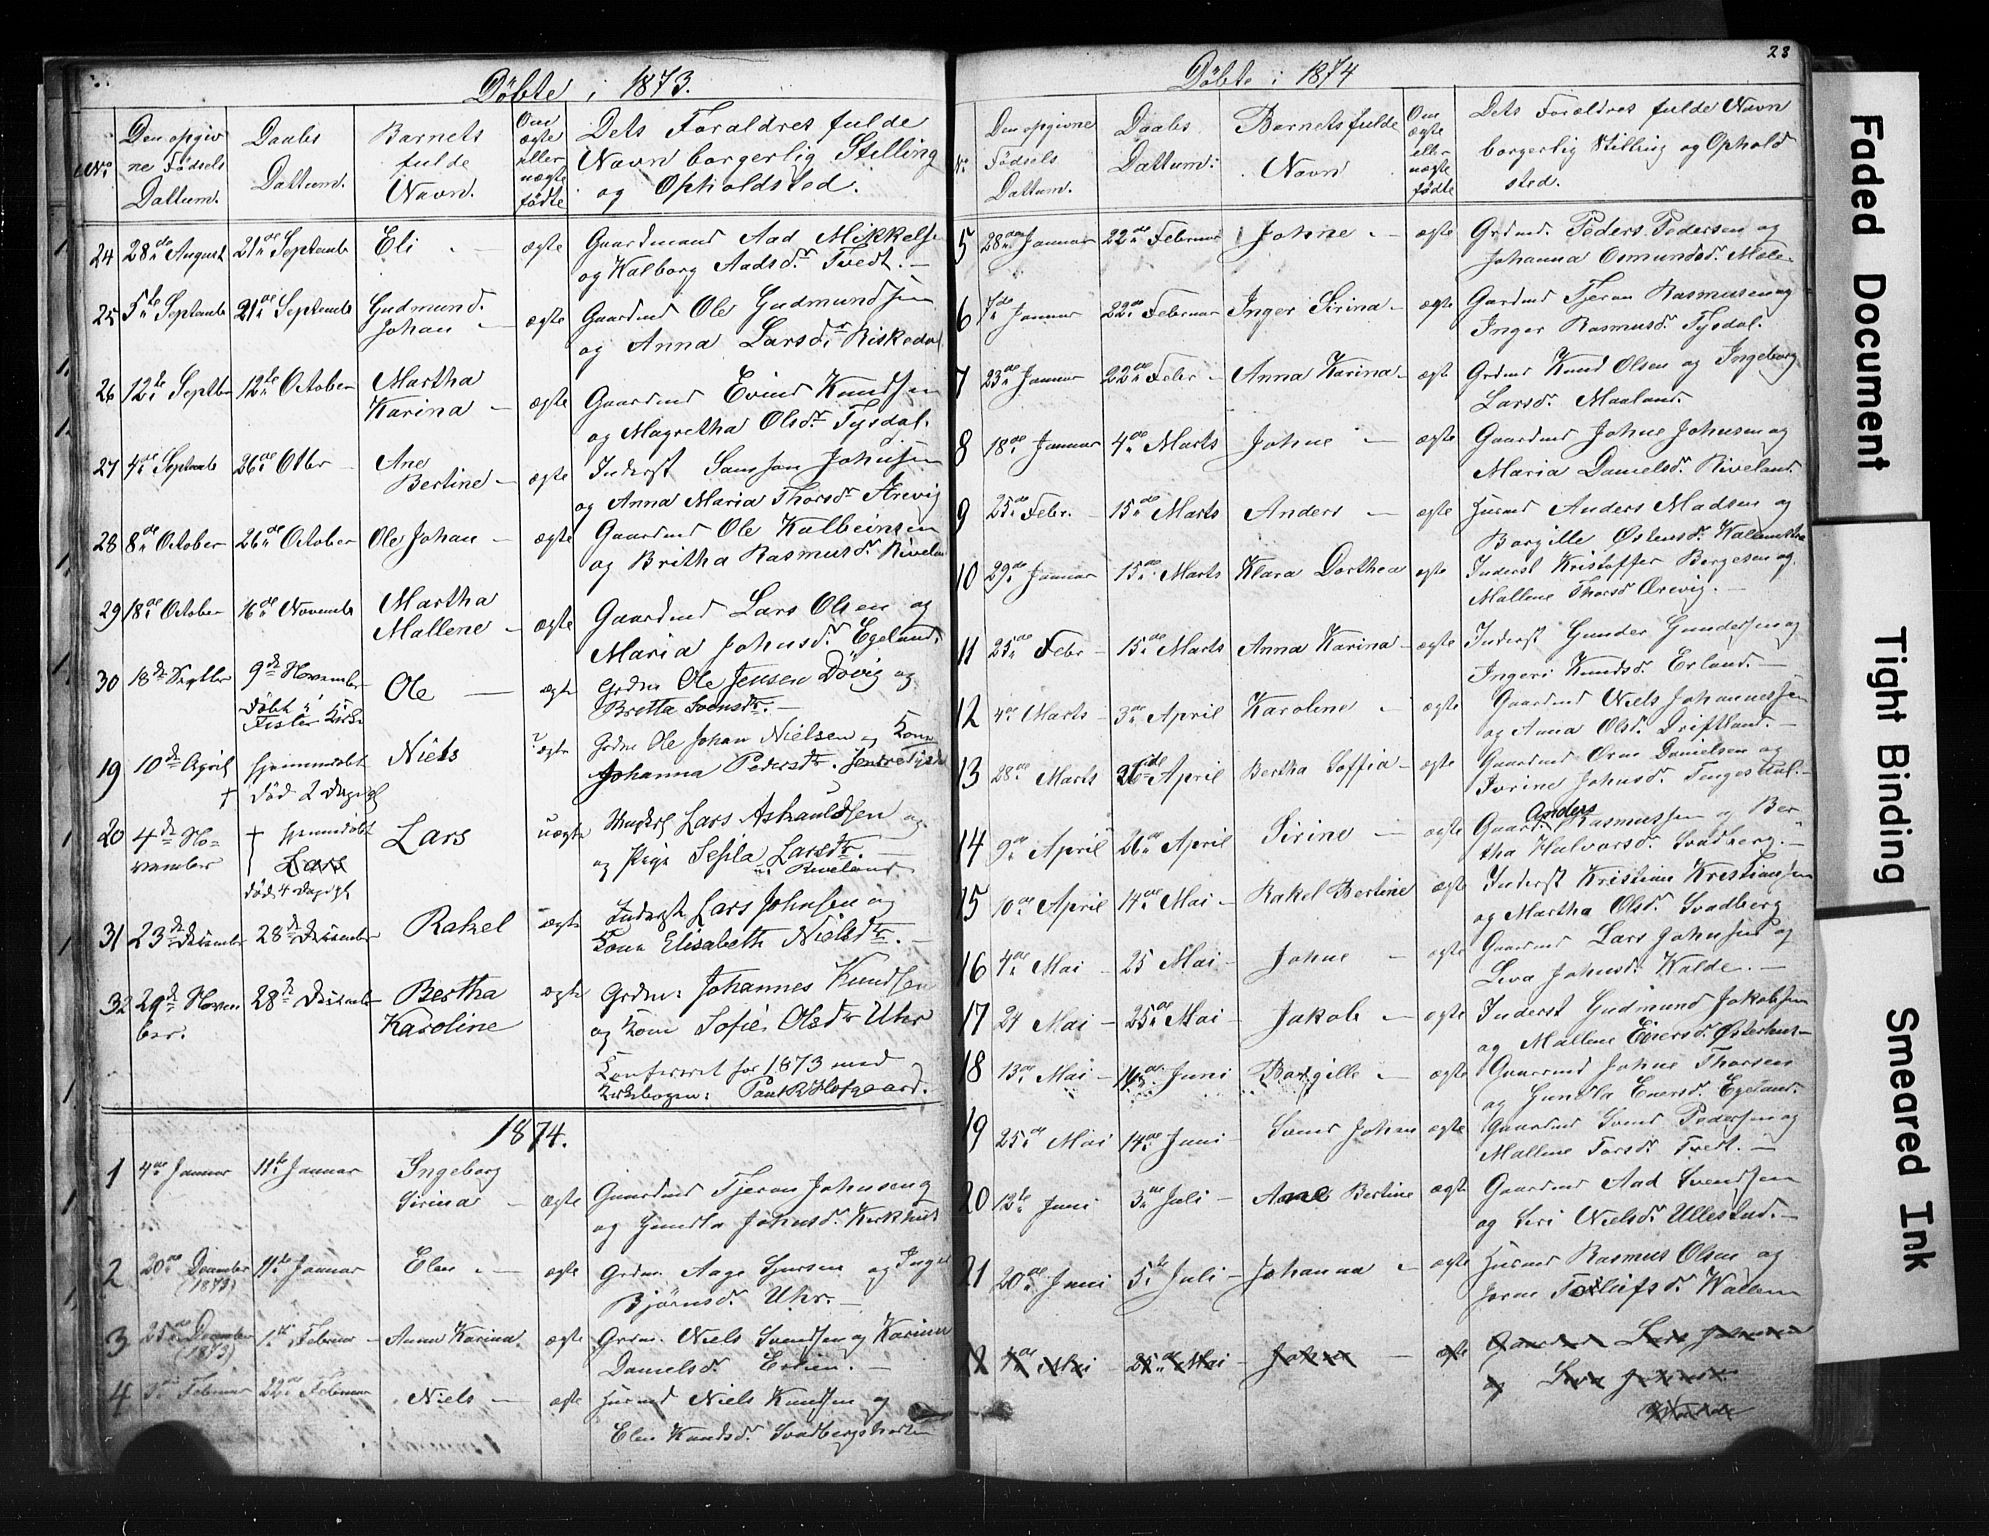 Döbte i 1873.
No
Den opgiv
ne Fødsels
Dattum.
Daabs
Dattum.
Barnets
fulde
Navn.
Om
ægte
eller
uægte
fødte
Dets Foraldres fulde
Navn borgerlig Stilling
og Opholdsted.
24 28de August 21de Septembr Eli - ægte Gaardmand Aad Mikkelsen
og Walborg Aadsdr Tvedt. -
25 5te Septembr 21de Septembr Gudmund Johan - ægte Gaardmd Ole Gudmundsen
og Anna Larsdr Riskedal
26 12te Septbr 12te October Martha Karina - ægte Gaardmd Evind Knudsen
og Magretha Olsdr Tysdal.
27 4de Septembr 26de Otbr - Ane Bertine - ægte Inderst Samson Johnsen
og Anna Maria Thorsdr Årevig
28 8de October 26de October Ole Johan - ægte Gaardmd Ole Kalbeinsen
og Britha Rasmusdr Riveland
29 18de October 16de Novembr Martha Mallene - ægte Gaardmd Lars Olsen og
Maria Johnsdr Egeland.
30 18de Septbr 9de November
Døbt i
Fister Kirke Ole - ægte Grdm Ole Jensen Dövig og
Bretta Svensdtr. -
19 10de April
† hjemmedøbt
død 2 Dage gl Niels ? ægte Grdm Ole Johan Nielsen og Kone
Johanna Pedersdtr.
20 4de No-
vember † hjemmedøbt
Lars
død, 4 Dage gl Lars uægte Ungkrl Lars Askauldsen og
og Pige Larsdtr.
Riveland
31 23de Desember 28de Desember Rakel ægte Inderst Lars Johnsen og
Kone Elisabeth Nielsdtr. -
32 29de Novem
ber. 28de Desembr Bertha
Karoline ægte Grdm: Johannes Knudsen
og Kone Sofie Olsdtr Uhr
Konfereret for 1873 med
Kirkebogen:
1874.
1 4de Januar 11te Januar Ingeborg
Sirina - ægte Gaardmd Tjeran Johnsen og
og Gundla Johnsdr Kirkhus
2 20de December
(1873) 11te Januar Elen - ægte Grdm. Aage Sjursen og Inger
Bjørnsdr Uhr. -
3 25de December
(1873) 1ste Februar - Anna Karina. ægte Grdm. Niels Svendsen og Karina
Danielsdr -
4 Februar 22de Februar Niels - ægte Husmd Niels Knudsen og
Elen Knudsdr
28
Döbte i 1874
No
Den opgivne
Födsels
Dattum.
Daabs
Dattum:
Barnets fulde
Navn
Om
ægte
eller
uægte
födte
Dets Forældres fulde Navn
borgerlig Stilling og Ophold
sted.
5 28de Januar 22de Februar Johne - ægte Grdmd. Peders Pedersen og
Johanna Osmundsdr. Mæle.
6 7de Januar 22de Februar Inger Sirina - ægte Gardmd Tjeran Rasmusen og
Inger Rasmusdr. Tysdal.
7 23de Januar 22de Febr - Anna Karina - ægte Grdmd Knud Olsen og Ingeborg
Larsdr. Maaland.
8 18de Januar 4de Marts Johne - ægte Gaardmd Johne Johnsen og
Maria Danielsdr. Riveland.
9 25de Febr. - 15de Marts Anders - ægte Husmd Anders Madsen og
Borgille Østensdr.
10 29de Januar 15de Marts Klara Dorthea ægte Inderst Kristoffer Bergesen og
Mallene Thorsdr Ørevig. -
11 25de Febr - 15de Marts Anna Karina - ægte Inderst Gunder Gundersen og
Ingeri Knudsdr. Erland. -
12 4de Marts - 3de April Karoline - ægte Gaardmd Niels Johannessen
og Anna Olsdr. Driftland. -
13 28de Marts 26de April Bertha Soffia - ægte Gaardmd Orm Danielsen og
Ivrine Johnsdr. Tengesdal. -
14 9de April 26de April Sirine - ægte Gaardm Anders Rasmussen og Ber-
tha Halvorsdr. Svadberg. -
15 10de April 14de Mai - Rakel Bertine ægte Inderst Kristian Kristiansen
og Martha Olsdr. Svadberg
16 4de Mai - 25 Mai - Johne - ægte Gaardmd Lars Johnsen og
Siva Johnsdr. Walde. -
17 24 Mai - 25de Mai - Jakob - ægte Inderst Gudmund Jakobsen
og Mallene Einersdr. Østerhus -
18 13de Mai - 14de Juni Borgille - ægte Gaardmd Johne Thorsen
og Gundla Enersdr. Egeland.
19 25de Mai 14de Juni - Svend Johan ægte Gaardmd Svend Pedersen og
Mallene Torsdr. Tvedt. -
20 13te Juni 3de Juli - Aane Bertine ægte Gaardmd Aad Svendsen
og Siri Nielsdr. Ullestad. -
21 20de Juni 5te Juli - Johanna - ægte Husmd Rasmus Olsen og
Joren Tollufsdr. Wallem
4de Mai 25de Mai - Johne - ægte Gaardmd Lars Johnsen
og Siva
Faded Document
Tight Binding
Smeared Ink